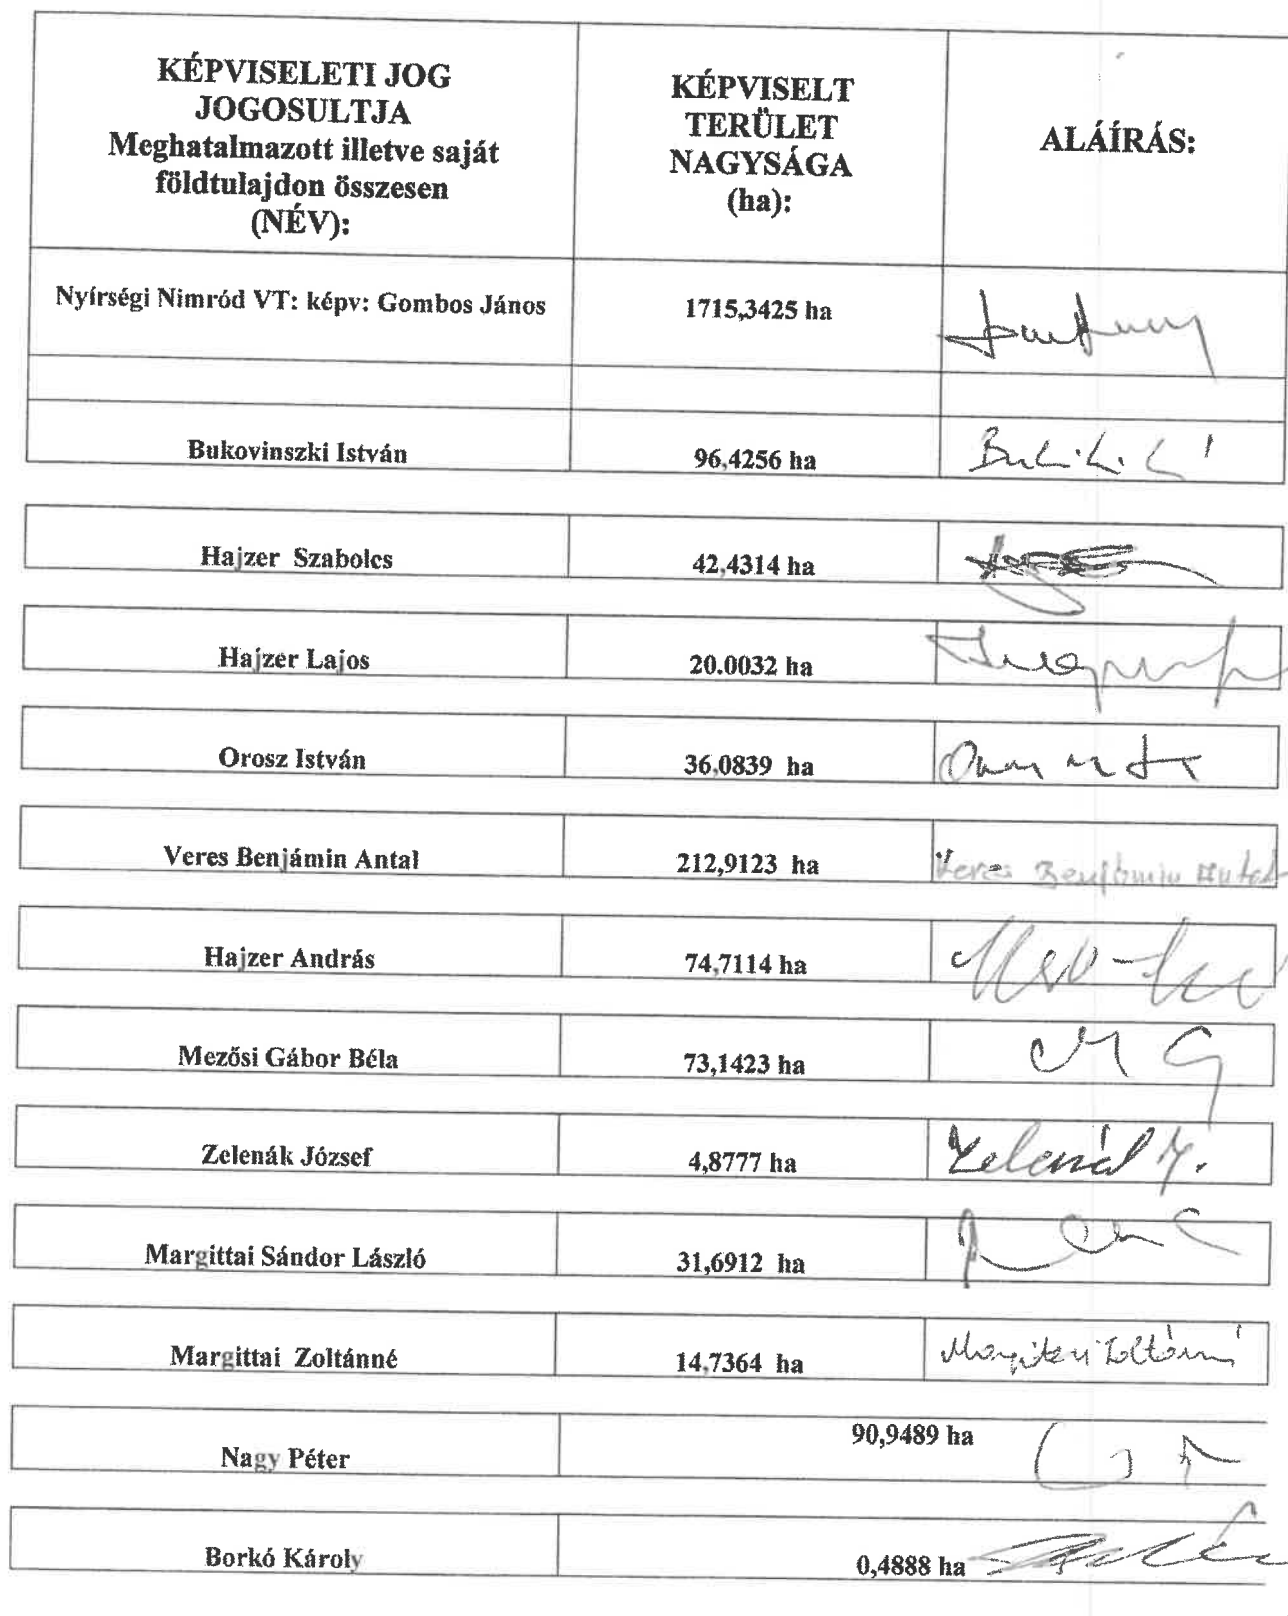 KÉPVISELETI JOG
JOGOSULTJA
Meghatalmazott illetve saját
földtulajdon összesen
(NÉV):
KÉPVISELT
TERÜLET
NAGYSÁGA
(ha):
ALÁÍRÁS:
Nyírségi Nimród VT: képv: Gombos János
1715,3425 ha
Bukovinszki István
96,4256 ha
Hajzer Szabolcs
42,4314 ha
Hajzer Lajos
20.0032 ha
Orosz István
36,0839 ha
Veres Benjámin Antal
212,9123 ha
Veres Benjámin Antal
Hajzer András
74,7114 ha
Mezősi Gábor Béla
73,1423 ha
M G
Zelenák József
4,8777 ha
Zelenák J.
Margittai Sándor László
31,6912 ha
Margittai Zoltánné
14,7364 ha
Margittai Zoltánné
Nagy Péter
90,9489 ha
Borkó Károly
0,4888 ha